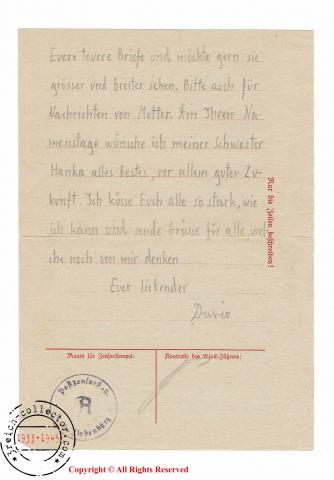 Euere teuere Briefe und möchte gern sie
grösser und breiter sehen. Bitte auch für
Nachrichten von Mutter. Am Ihren Na-
menstage wünsche ich meiner Schwester
Hanka alles bestes, vor allem guter Zu-
kunft. Ich küsse Euch alle so stark, wie
ich kann und sende Grüsse für alle, wel
che noch von mir denken
Euer liebender
Nur die Zeilen beschreiben!
Raum für Zensurstempel:
Kontrolle des Block-Führers:
Postzensurstelle
3reich-collector.com
1933-1945
Copyright © All Rights Reserved